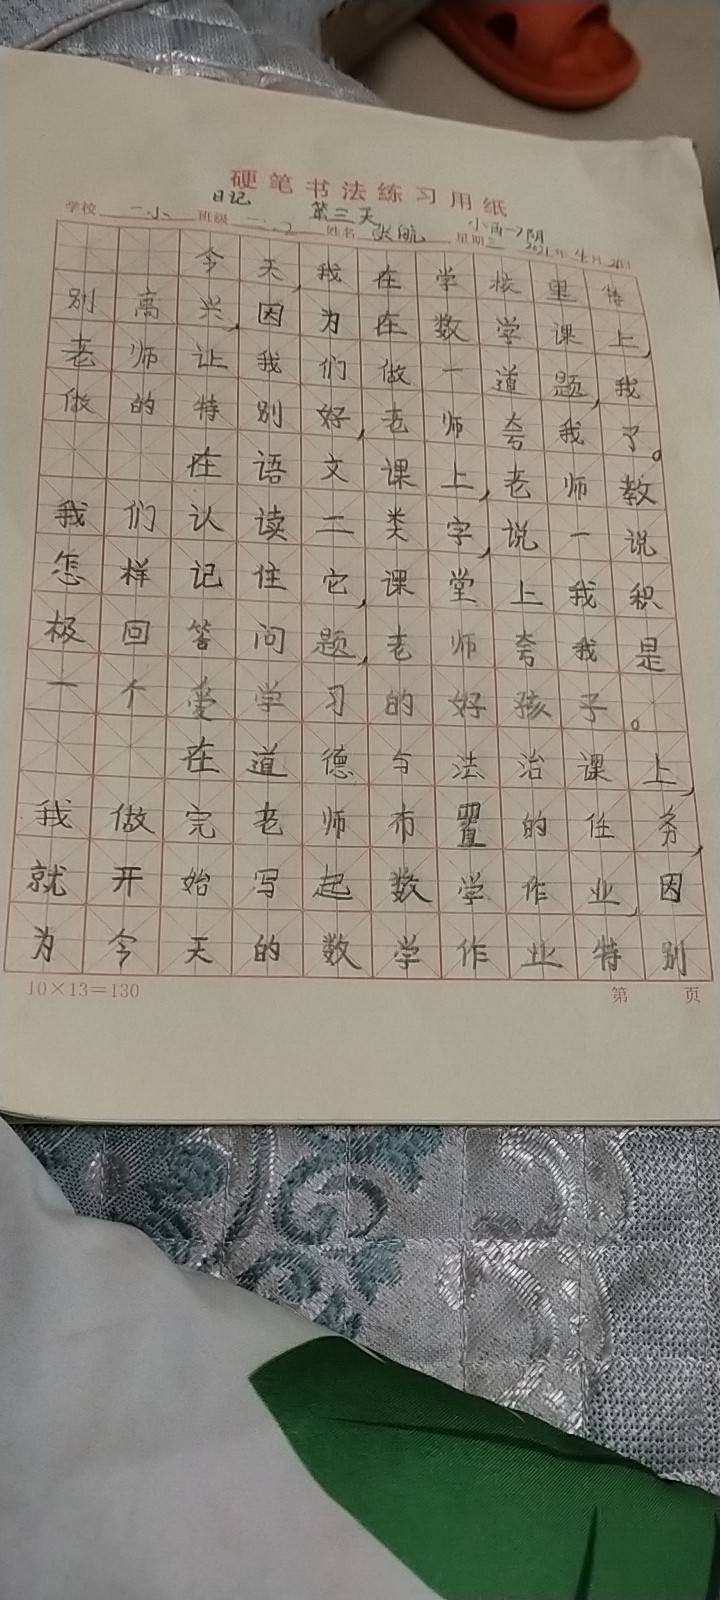 硬笔书法练习用纸
日记 第三天 小雨→阴
学校 一小 班级 二.2 姓名 张航 星期三 2021年4月21日
今天,我在学校里特
别高兴,因为在数学课上,
老师让我们做一道题,我
做的特别好,老师夸我了。
在语文课上,老师教
我们认读二类字,说一说
怎样记住它,课堂上我积
极回答问题,老师夸我是
一个爱学习的好孩子。
在道德与法治课上,
我做完老师布置的任务,
就开始写起数学作业,因
为今天的数学作业特别
10×13=130 第 页